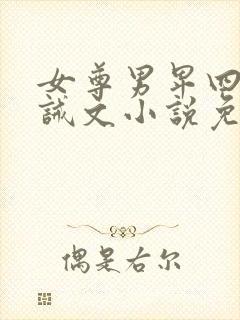 女尊男卑四
诫文小说免
偶是右尔